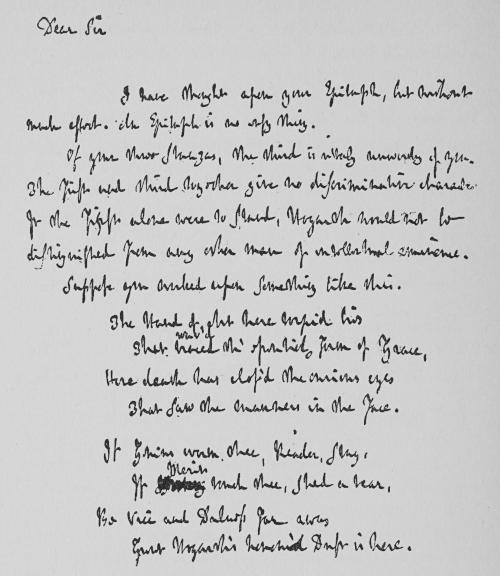 Dear Sir
I have thought upon your Epitaph, but without
much effort. An Epitaph is no easy thing.
Of your three stanzas, the third is utterly unworthy of you.
The First and third together give no discriminative character
If the First alone were to stand, Hogarth would not be
distinguished from any other man of intellectual eminence.
Suppose you worked upon something like this.
The Hand of Art here torpid lies
wav'd
That traced th' essential form of Grace,
Here death has clos'd the curious eyes
That saw the manners in the Face.
If Genius warm thee, Reader, stay,
Merit
If touch thee, shed a tear,
Be Vice and Dulness far away
Great Hogarth's honour'd Dust is here.